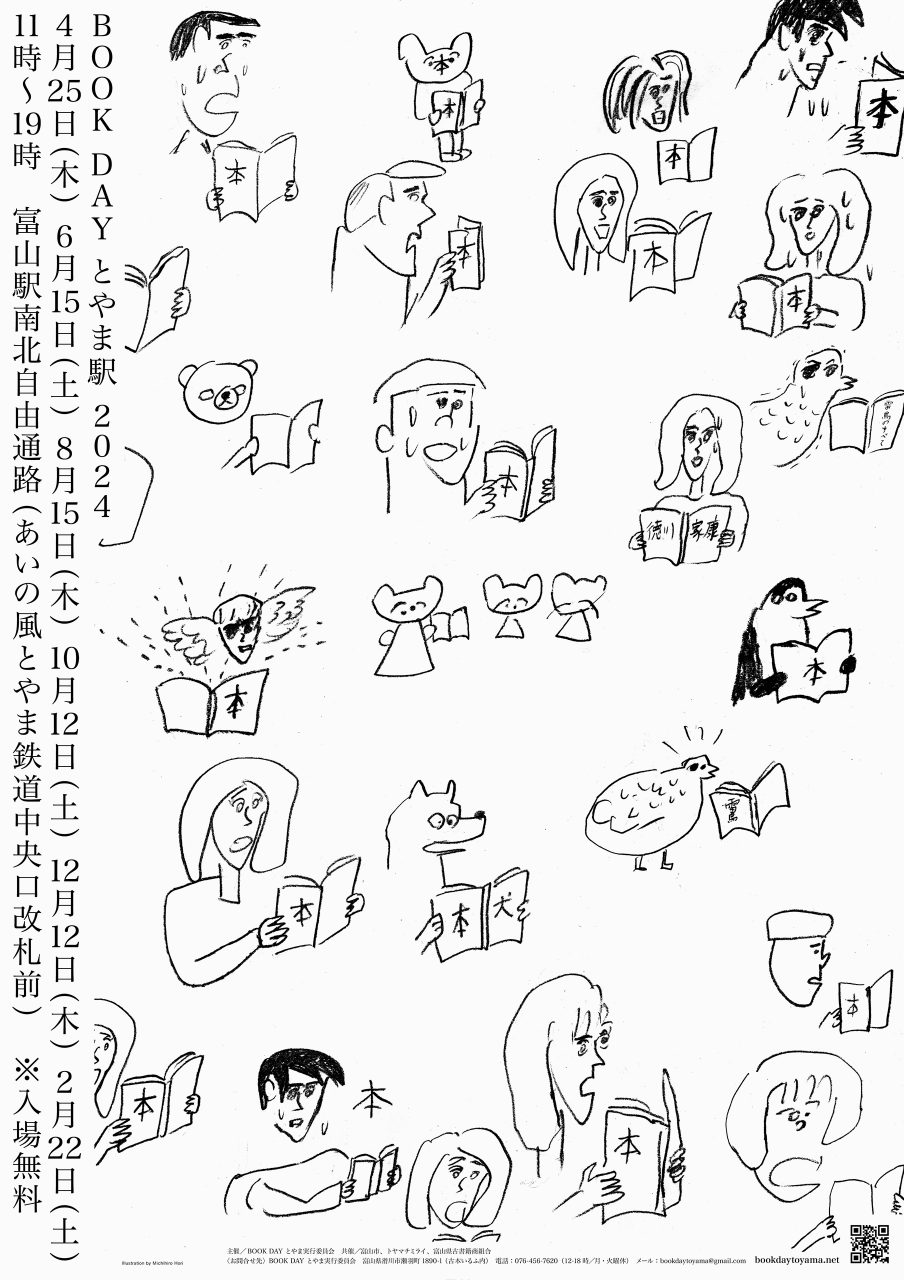 BOOK DAY とやま駅 2024
4月25日(木) 6月15日(土) 8月15日(木) 10月12日(土) 12月12日(木) 2月22日(土)
11時〜19時 富山駅南北自由通路(あいの風とやま鉄道中央口改札前) ※入場無料
本
本
本
本
本
本
本
本
本
徳川 家康
本
本
本
雷鳥
本
本 犬
本
本
本
本
主催／BOOK DAY とやま実行委員会 共催／富山市、トヤマチミライ、富山県古書籍商組合
〈お問合せ先〉BOOK DAY とやま実行委員会 富山県滑川市瀬羽町 1890-1（古本いるふ内） 電話：076-456-7620（12-18 時／月・火曜休） メール：bookdaytoyama@gmail.com bookdaytoyama.net
Illustration by Michihiro Hori